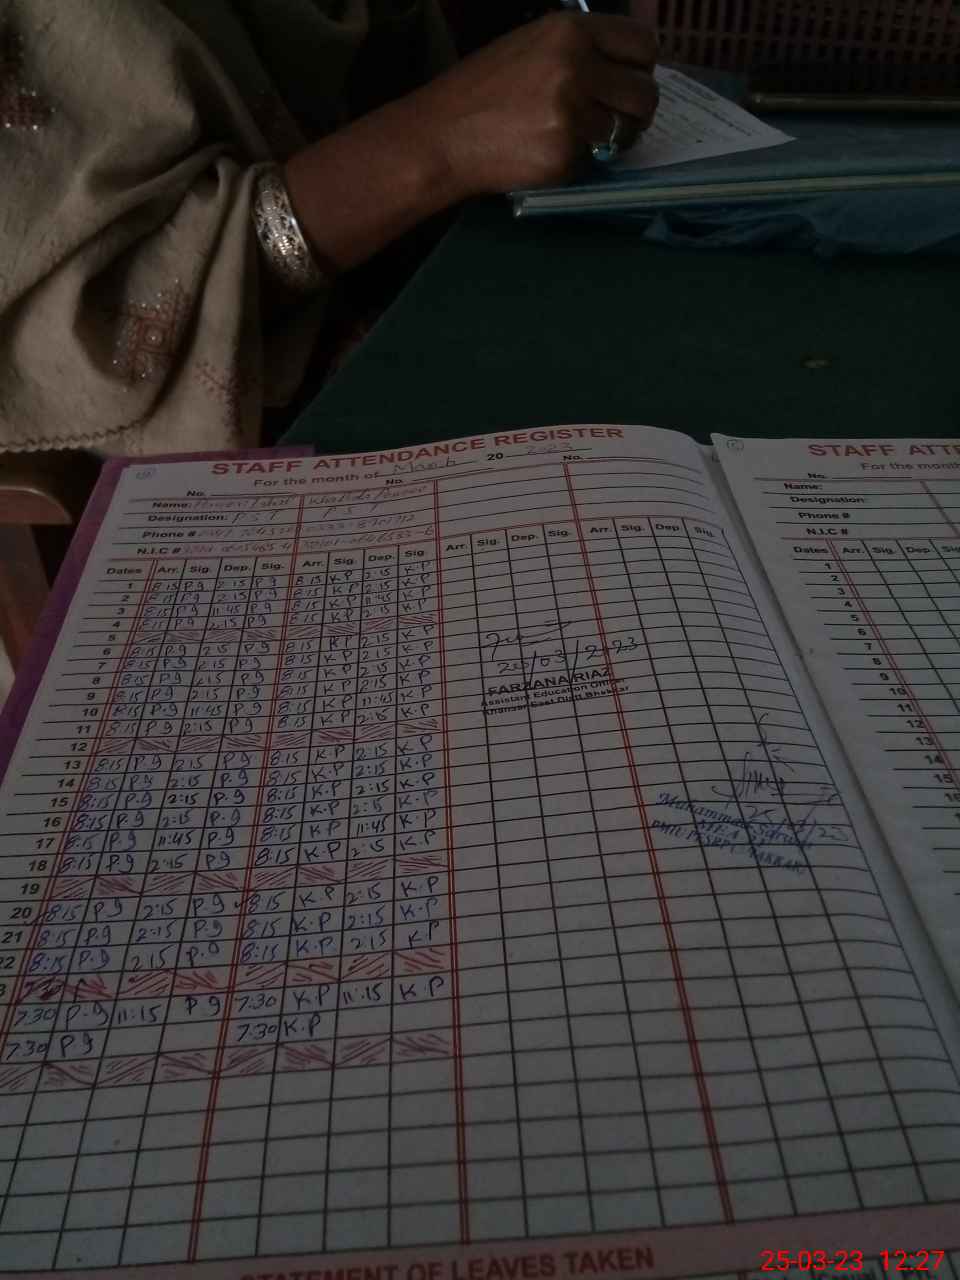 STAFF ATTENDANCE REGISTER
For the month of March 20 2023
No. No. No.
Name: Khalida Parveen
Designation: P S T P S T
Phone #
N.I.C #
Dates Arr. Sig. Dep. Sig. Arr. Sig. Dep. Sig. Arr. Sig. Dep. Sig. Arr. Sig. Dep. Sig.
1 8:15 P.9 2:15 P.9 8:15 K.P 2:15 K.P
2 8:15 P.9 2:15 P.9 8:15 K.P 2:15 K.P
3 8:15 P.9 11:45 P.9 8:15 K.P 11:45 K.P
4 8:15 P.9 2:15 P.9 8:15 K.P 2:15 K.P
5
6 8:15 P.9 2:15 P.9 8:15 K.P 2:15 K.P
7 8:15 P.9 2:15 P.9 8:15 K.P 2:15 K.P
8 8:15 P.9 2:15 P.9 8:15 K.P 2:15 K.P
9 8:15 P.9 2:15 P.9 8:15 K.P 2:15 K.P
10 8:15 P.9 11:45 P.9 8:15 K.P 11:45 K.P
11 8:15 P.9 2:15 P.9 8:15 K.P 2:15 K.P
12
13 8:15 P.9 2:15 P.9 8:15 K.P 2:15 K.P
14 8:15 P.9 2:15 P.9 8:15 K.P 2:15 K.P
15 8:15 P.9 2:15 P.9 8:15 K.P 2:15 K.P
16 8:15 P.9 2:15 P.9 8:15 K.P 2:15 K.P
17 8:15 P.9 11:45 P.9 8:15 K.P 11:45 K.P
18 8:15 P.9 2:15 P.9 8:15 K.P 2:15 K.P
19
20 8:15 P.9 2:15 P.9 8:15 K.P 2:15 K.P
21 8:15 P.9 2:15 P.9 8:15 K.P 2:15 K.P
22 8:15 P.9 2:15 P.9 8:15 K.P 2:15 K.P
3 7:30
7:30 P.9 11:15 P.9 7:30 K.P 11:15 K.P
7:30 P.9 7:30 K.P
20/03/2023
FARZANA RIAZ
Assistant Education Officer
Khansar East Distt. Bhakkar
25/3/23
Muhammad
BHAKKAR
STATEMENT OF LEAVES TAKEN
STAFF ATTE
For the month
No.
Name:
Designation:
Phone #
N.I.C #
Dates Arr. Sig. Dep. Sig
1
2
3
4
5
6
7
8
9
10
11
12
13
14
15
16
25-03-23 12:27